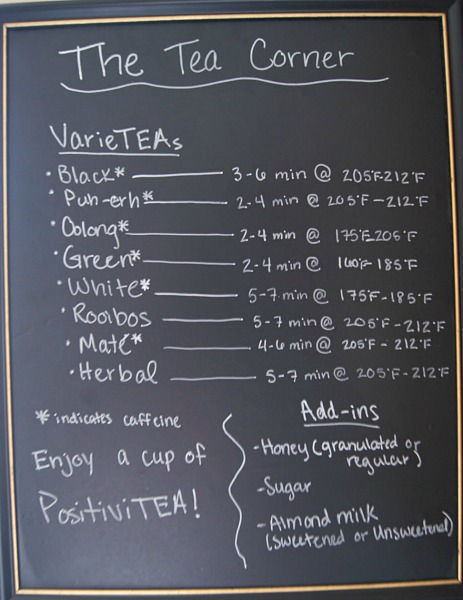 The Tea Corner
VarieTEAs
• Black* 3-6 min @ 205°F-212°F
• Puh-erh* 2-4 min @ 205°F-212°F
• Oolong* 2-4 min @ 175°F-205°F
• Green* 2-4 min @ 160°F-185°F
• White* 5-7 min @ 175°F-185°F
• Rooibos 5-7 min @ 205°F-212°F
• Maté* 4-6 min @ 205°F-212°F
• Herbal 5-7 min @ 205°F-212°F
* indicates caffeine
Enjoy a cup of
PositiviTEA!
Add-ins
-Honey (granulated or
regular)
-Sugar
-Almond milk
(Sweetened or Unsweetened)